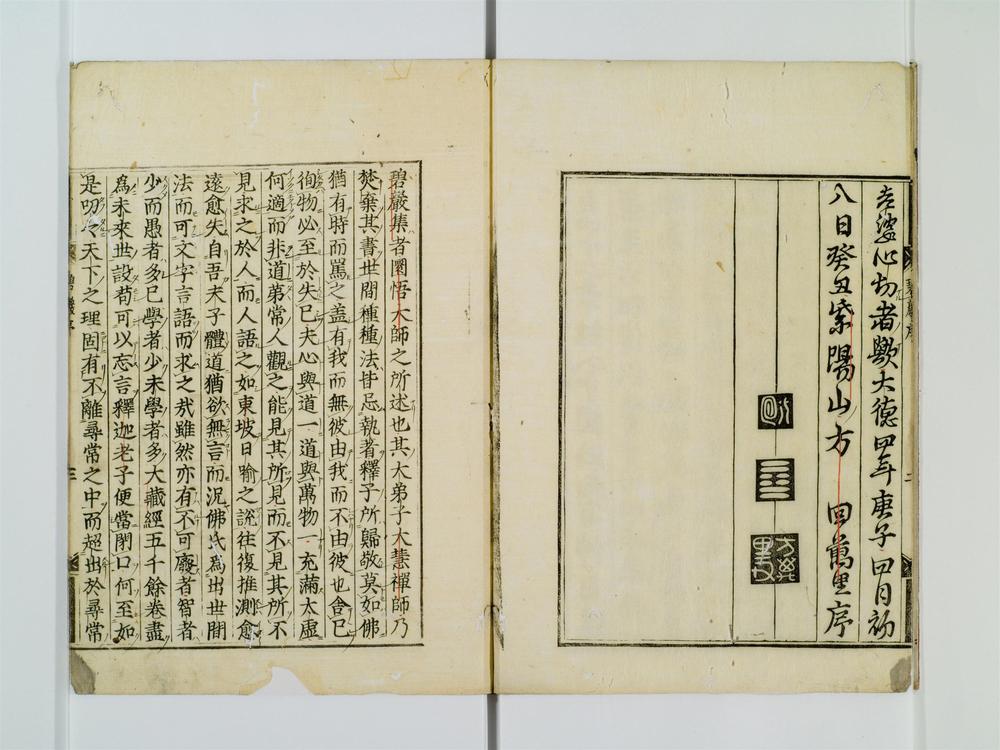 老婆心切者歟大德四年庚子四月初
八日癸丑紫陽山方 回萬里序
碧巖集者圜悟大師之所述也其大弟子大慧禪師乃
焚棄其書世間種種法皆忌執著釋子所歸敬莫如佛
猶有時而罵之盖有我而無彼由我而不由彼也舍己
徇物必至於失己夫心與道一道與萬物一充滿太虛
何適而非道第常人觀之能見其所見而不見其所不
見求之於人而人語之如東坡日喻之說往復推測愈
遠愈失自吾夫子體道猶欲無言而況佛氏爲出世間
法而可文字言語而求之哉雖然亦有不可廢者智者
少而愚者多已學者少未學者多大藏經五千餘卷盡
爲未來世設苟可以忘言釋迦老子便當閉口何至如
是叨叨天下之理固有不離尋常之中而超出於尋常